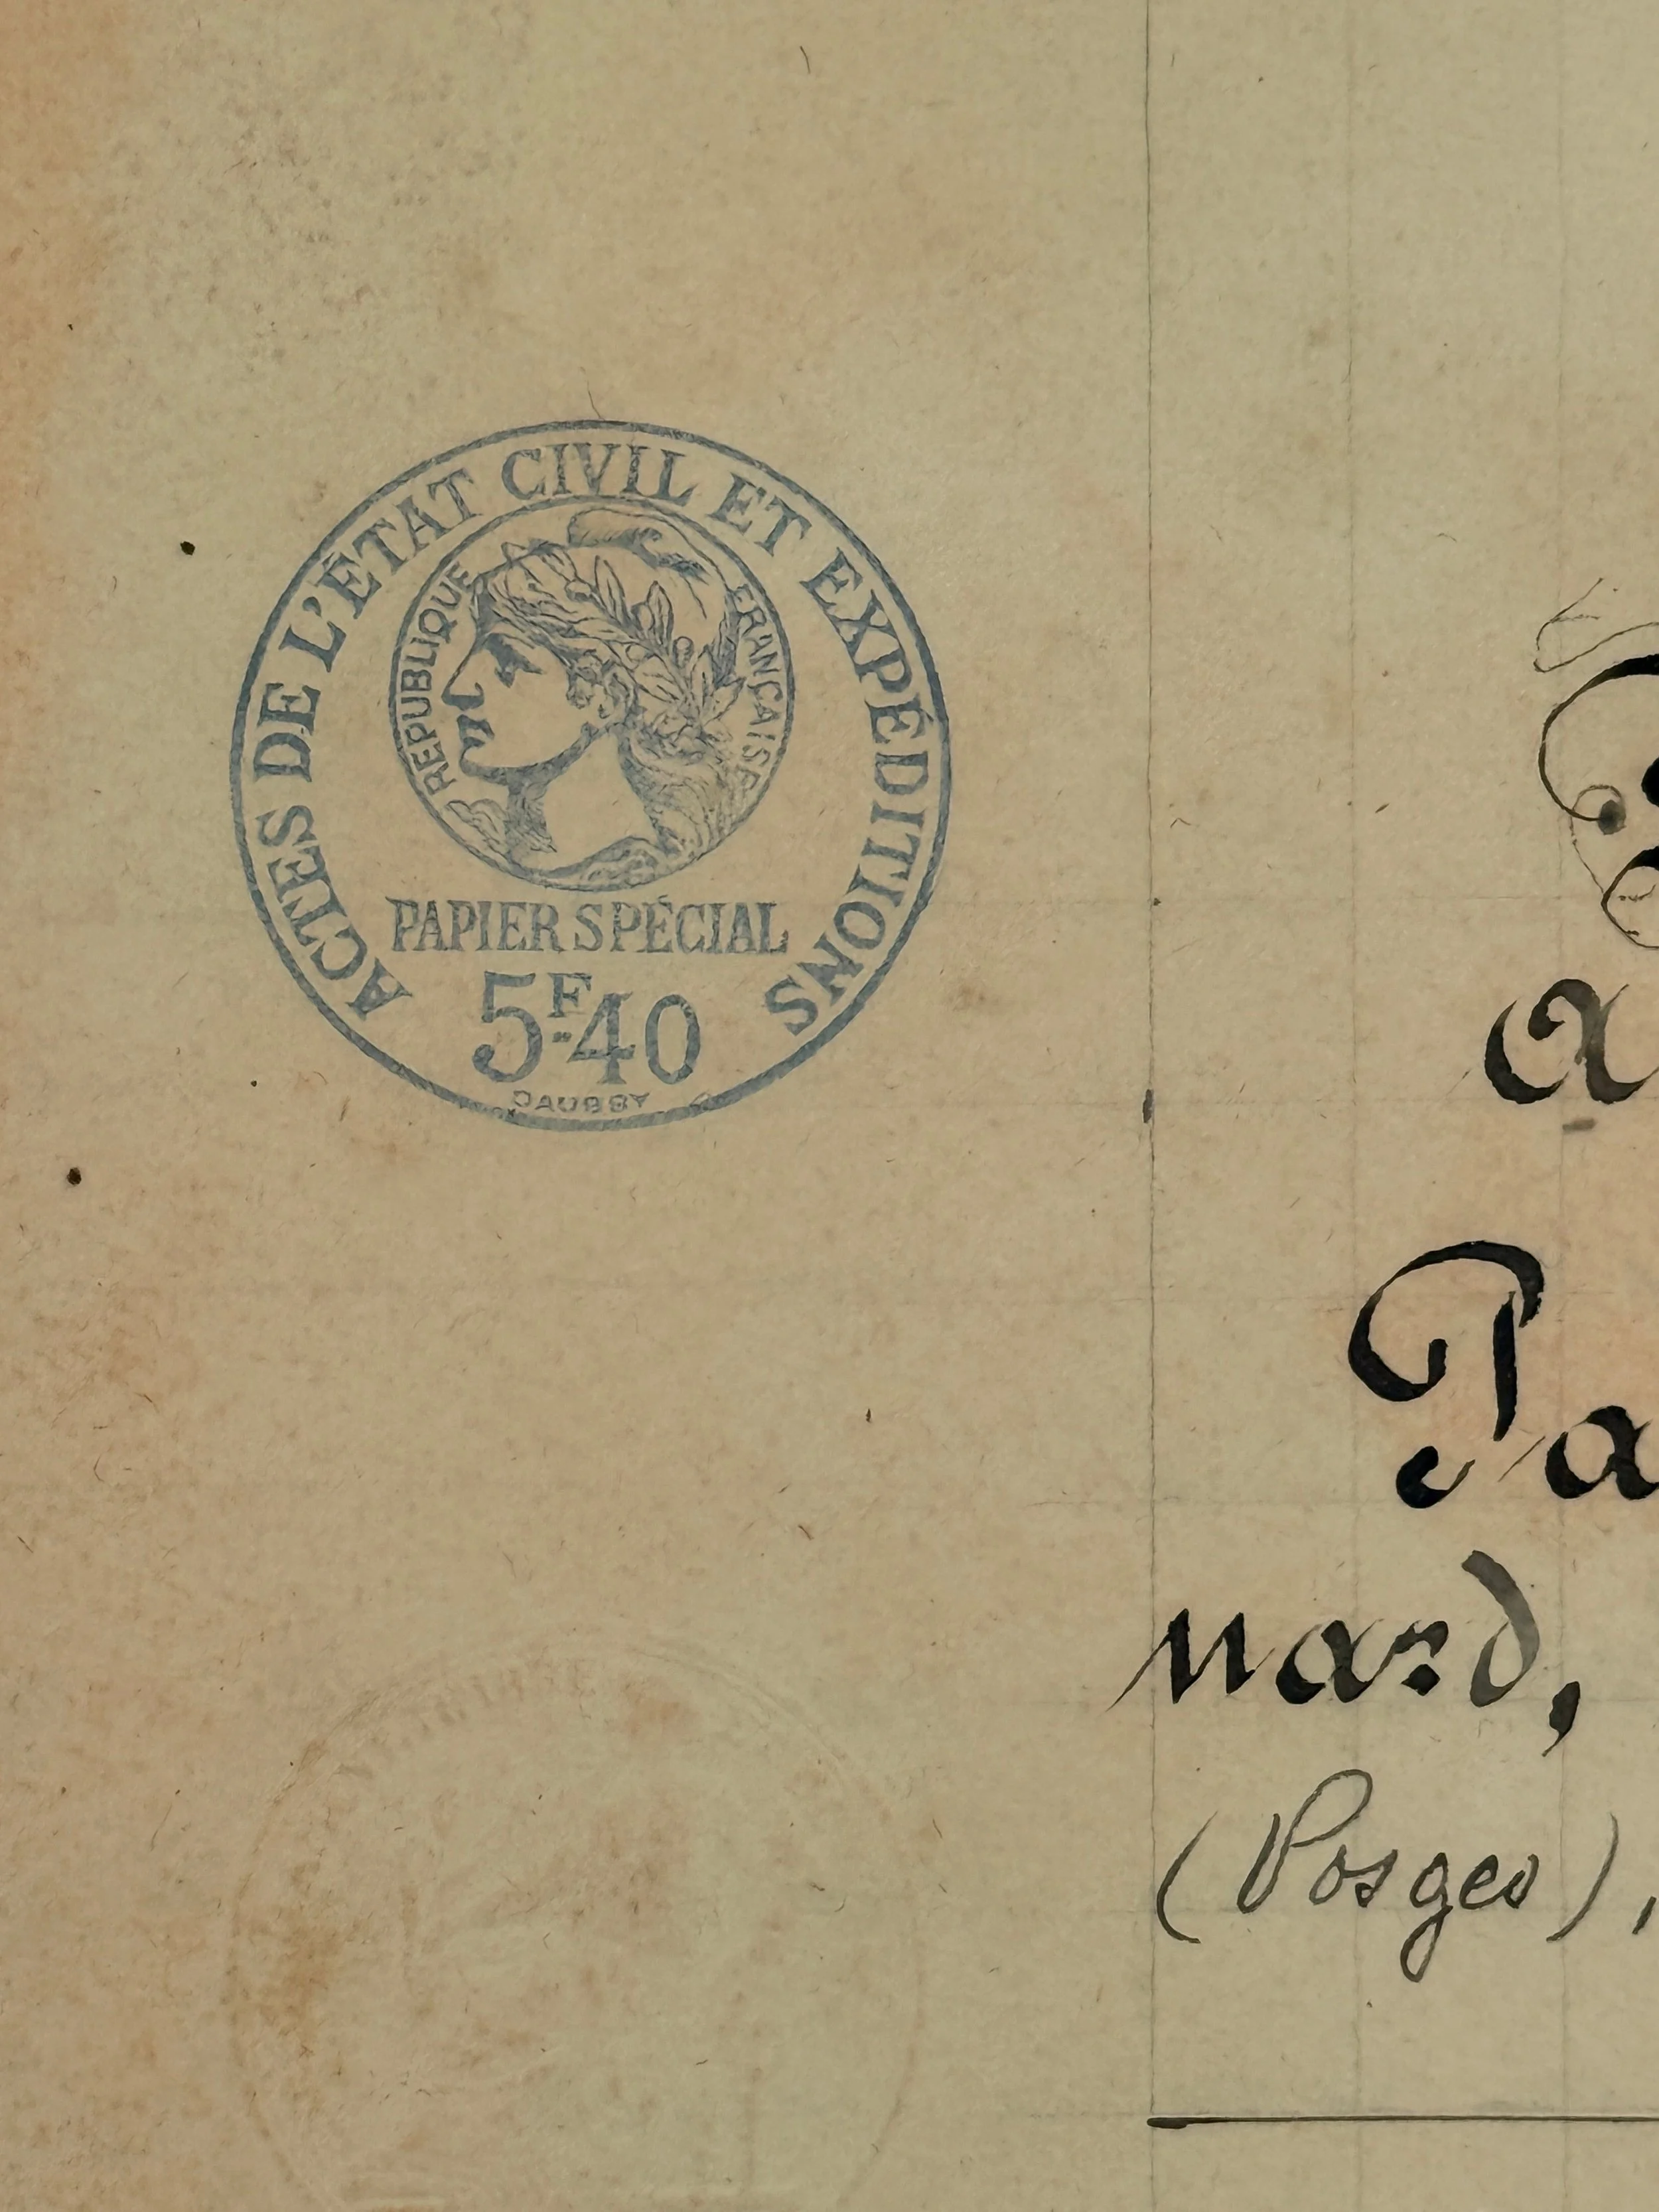 ACTES DE L'ÉTAT CIVIL ET EXPÉDITIONS
RÉPUBLIQUE FRANÇAISE
PAPIER SPÉCIAL
5F.40
DAUSSY
a
Pa
nard,
(Vosges),